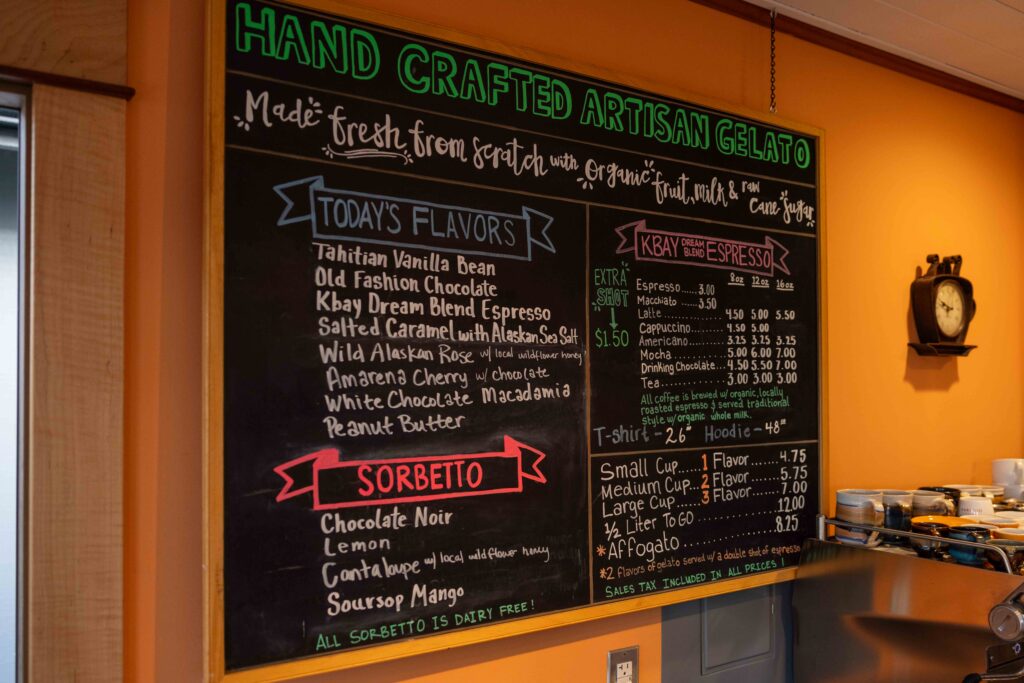 HAND CRAFTED ARTISAN GELATO
Made fresh from scratch with organic fruit, milk & raw cane sugar
TODAY'S FLAVORS
Tahitian Vanilla Bean
Old Fashion Chocolate
Kbay Dream Blend Espresso
Salted Caramel with Alaskan Sea Salt
Wild Alaskan Rose w/ local wildflower honey
Amarena Cherry w/ chocolate
White Chocolate Macadamia
Peanut Butter
SORBETTO
Chocolate Noir
Lemon
Cantaloupe w/ local wildflower honey
Soursop Mango
ALL SORBETTO IS DAIRY FREE!
KBAY DREAM BLEND ESPRESSO
EXTRA SHOT
$1.50
8oz 12oz 16oz
Espresso.....3.00
Macchiato.....3.50
Latte..............4.50 5.00 5.50
Cappuccino........4.50 5.00
Americano........3.25 3.25 3.25
Mocha............5.00 6.00 7.00
Drinking Chocolate...4.50 5.50 7.00
Tea..............3.00 3.00 3.00
All coffee is brewed w/organic, locally
roasted espresso & served traditional
style w/organic whole milk.
T-shirt - 26 Hoodie - 48
Small Cup.....1 Flavor.....4.75
Medium Cup...2 Flavor.....5.75
Large Cup....3 Flavor.....7.00
1/2 Liter To GO............12.00
*Affogato................8.25
*2 flavors of gelato served w/ a double shot of espresso
SALES TAX INCLUDED IN ALL PRICES!